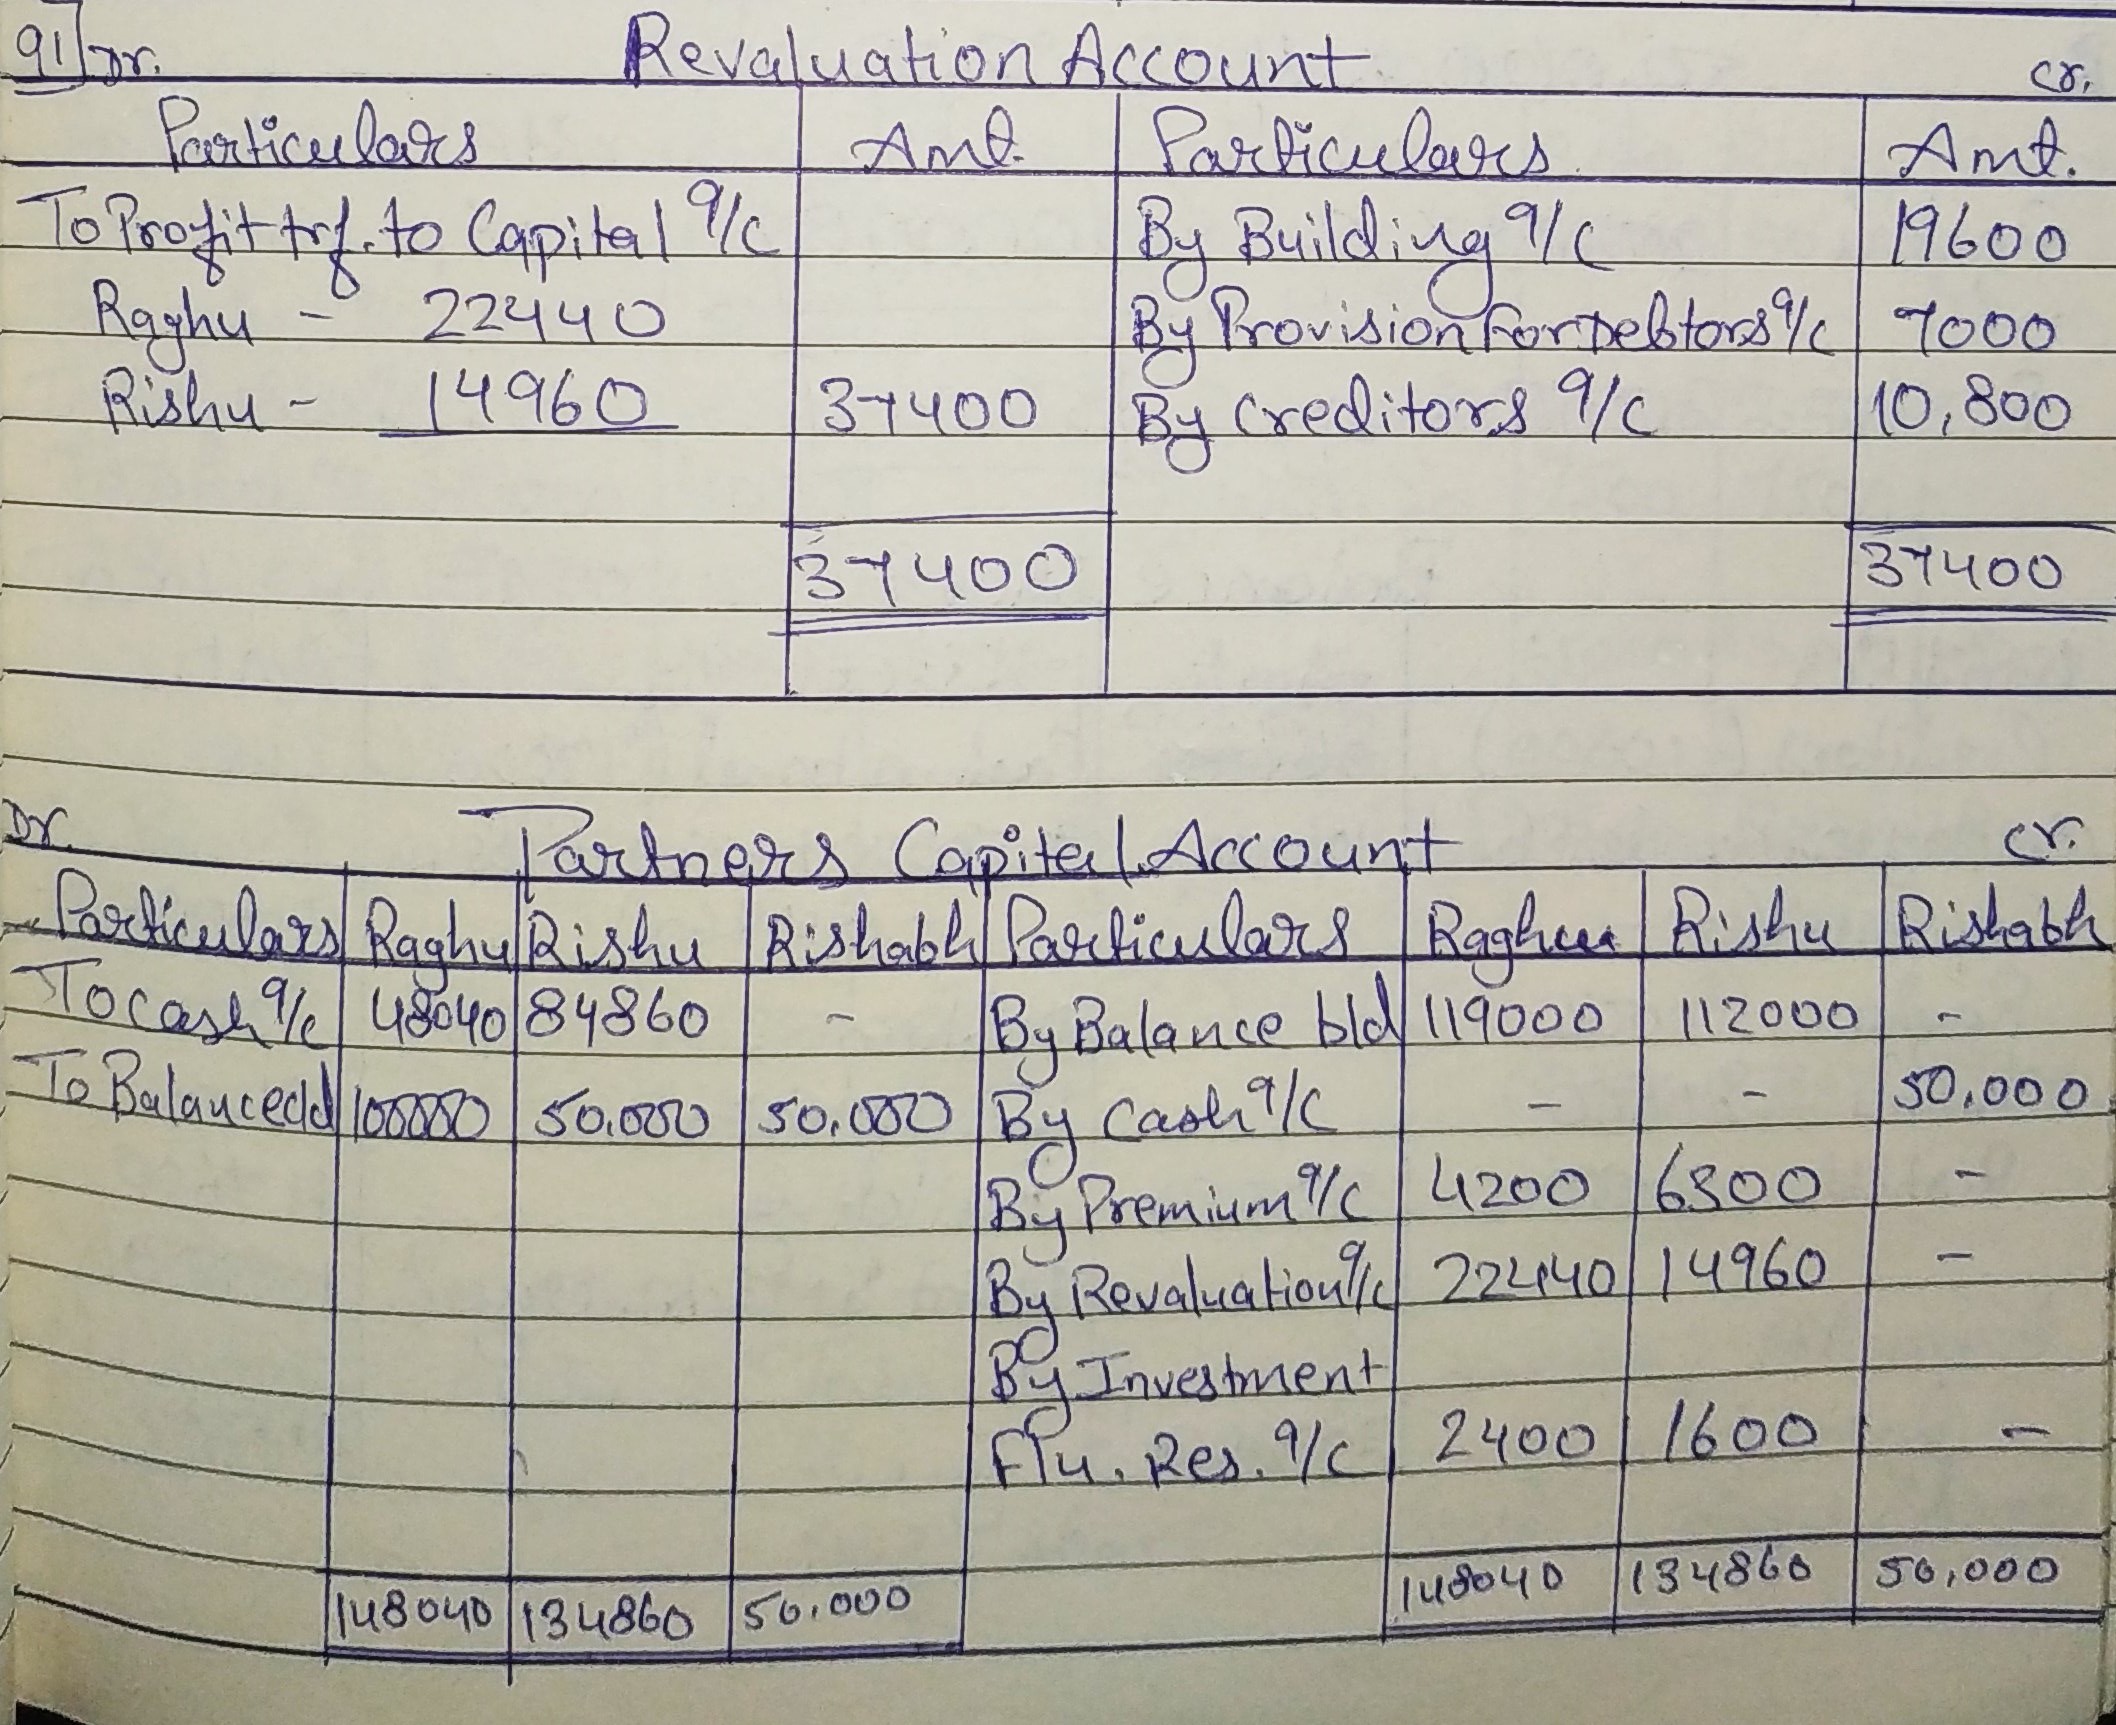 91 Dr. Revaluation Account Cr.
Particulars Amt. Particulars Amt.
To Profit trf. to Capital a/c By Building a/c 19600
Raghu - 22440 By Provision For Debtors a/c 7000
Rishu - 14960 37400 By Creditors a/c 10,800
37400 37400
Dr. Partners Capital Account Cr.
Particulars Raghu Rishu Rishabh Particulars Raghu Rishu Rishabh
To cash a/c 48040 84860 - By Balance b/d 119000 112000 -
To Balance c/d 100000 50,000 50,000 By Cash a/c - - 50,000
By Premium a/c 4200 6300 -
By Revaluation a/c 22440 14960 -
By Investment
Flu. Res. a/c 2400 1600 -
148040 134860 50,000 148040 134860 50,000